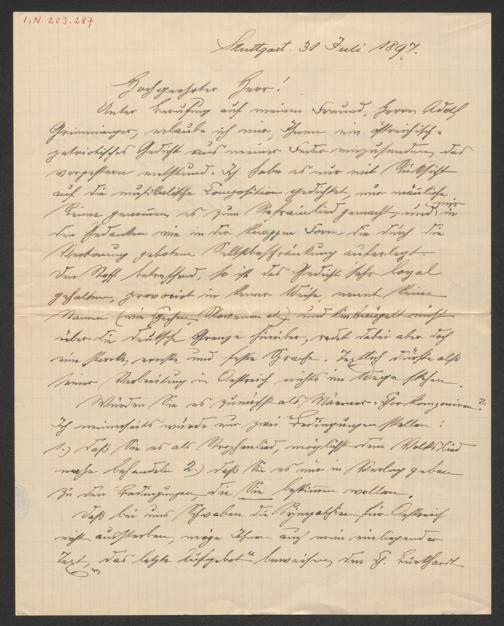 I.N. 203.287
Stuttgart. 30 Juli 1897.
Hochgeehrter Herr!
Unter Berufung auf meinen Freund, Herrn Adolf
Grimminger, erlaube ich mir, Ihnen ein östreichisch-
patriotisches Gedicht aus meiner Feder einzusenden, das
vorgestern entstund. Ich habe es nur mit Rücksicht
auf die musikalische Composition gedichtet, nur männliche
Reime genommen, es zum Refrainlied gemacht, und mir in
den Gedanken wie in der knappen Form die durch die
Vertonung gebotene Selbstbeschränkung auferlegt.
Den Stoff betreffend, so ist das Gedicht sehr loyal
gehalten, provocirt in keiner Weise, nennt keine
Namen (wie Czechen, Slovenen etc) und liebäugelt nicht
über die deutsche Grenze hinüber, redet dabei aber doch
eine starke, ernste und feste Sprache. Textlich dürfte also
seiner Verbreitung in Oestreich nichts im Wege stehen.
Würden Sie es zunächst als Männer-Chor komponiren?
Ich meinerseits würde nur zwei Bedingungen stellen:
1.) daß Sie es als Strophenlied, möglichst dem Volkslied
nahe behandeln 2.) daß Sie es mir in Verlag geben
zu den Bedingungen die Sie bestimmen wollen.
Daß bei uns Schwaben die Sympathien für Oestreich
nicht aussterben, möge Ihnen auch mein einliegender
Text, „das letzte Aufgebot" beweisen, den H. Burkhardt